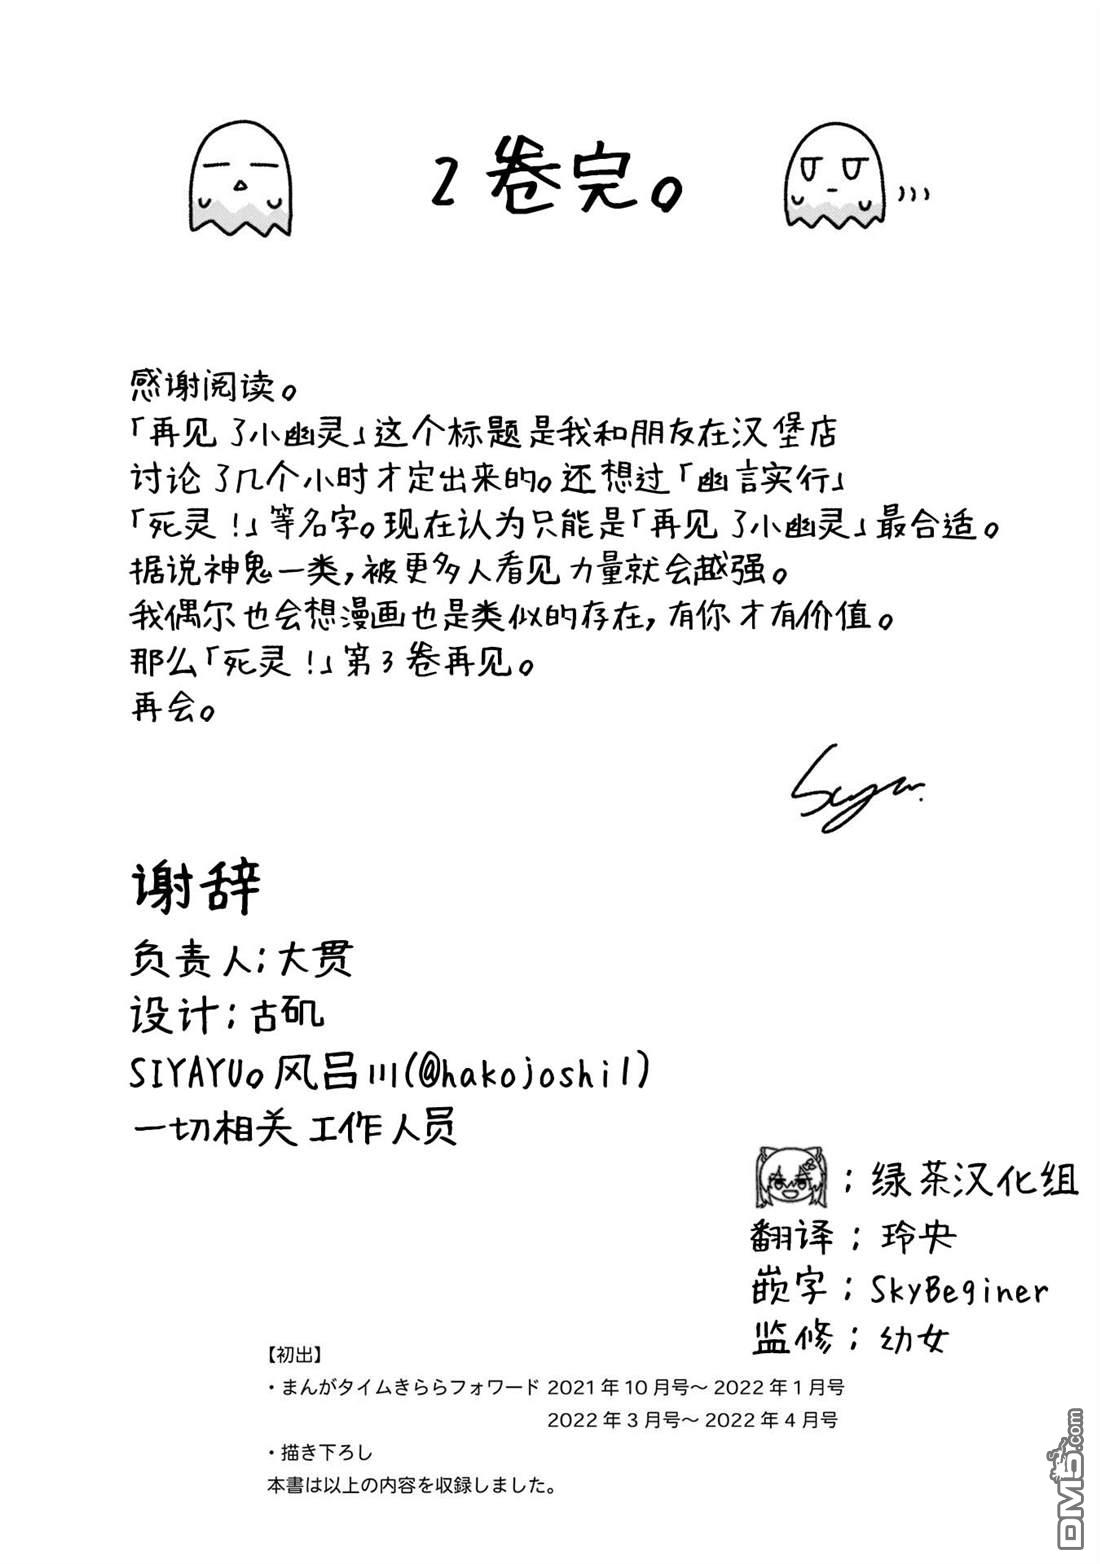 2卷完。
感谢阅读。
「再见了小幽灵」这个标题是我和朋友在汉堡店
讨论了几个小时才定出来的。还想过「幽言实行」
「死灵!」等名字。现在认为只能是「再见了小幽灵」最合适。
据说神鬼一类,被更多人看见力量就会越强。
我偶尔也会想漫画也是类似的存在,有你才有价值。
那么「死灵!」第3卷再见。
再会。
谢辞
负责人;大贯
设计;古矶
SIYAYU。风吕川(@hakojoshi1)
一切相关工作人员
:绿茶汉化组
翻译;玲央
嵌字:SkyBeginer
监修;幼女
【初出】
・まんがタイムきららフォワード 2021年10月号〜2022年1月号
2022年3月号〜2022年4月号
・描き下ろし
本書は以上の内容を収録しました。
DM5.com